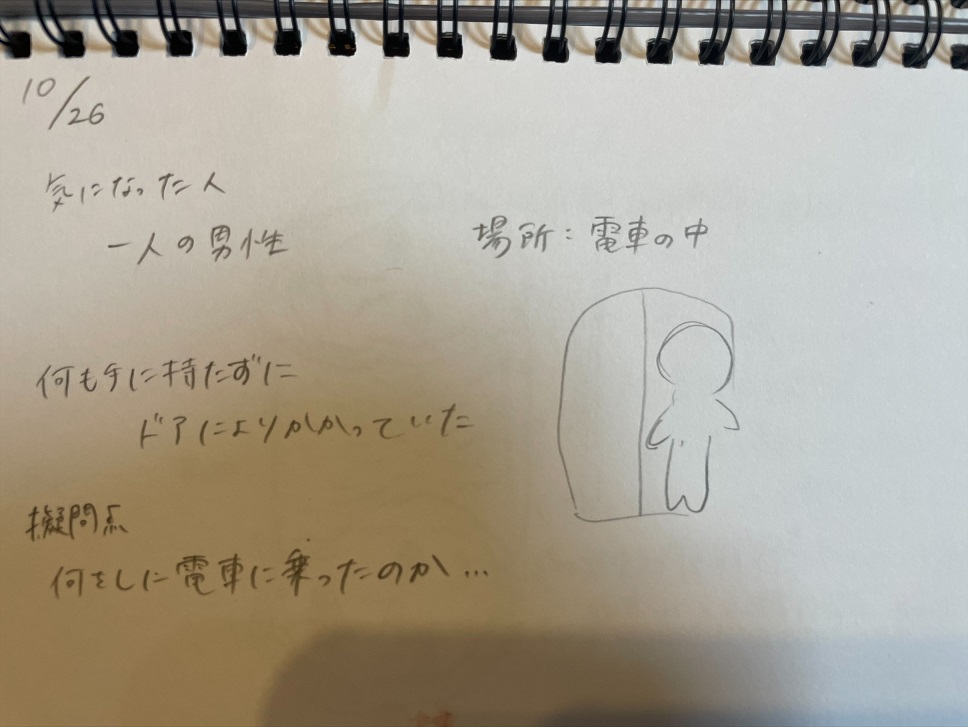 10/26
気になった人
一人の男性
場所：電車の中
何も手に持たずに
ドアによりかかっていた
擬問点
何をしに電車に乗ったのか…